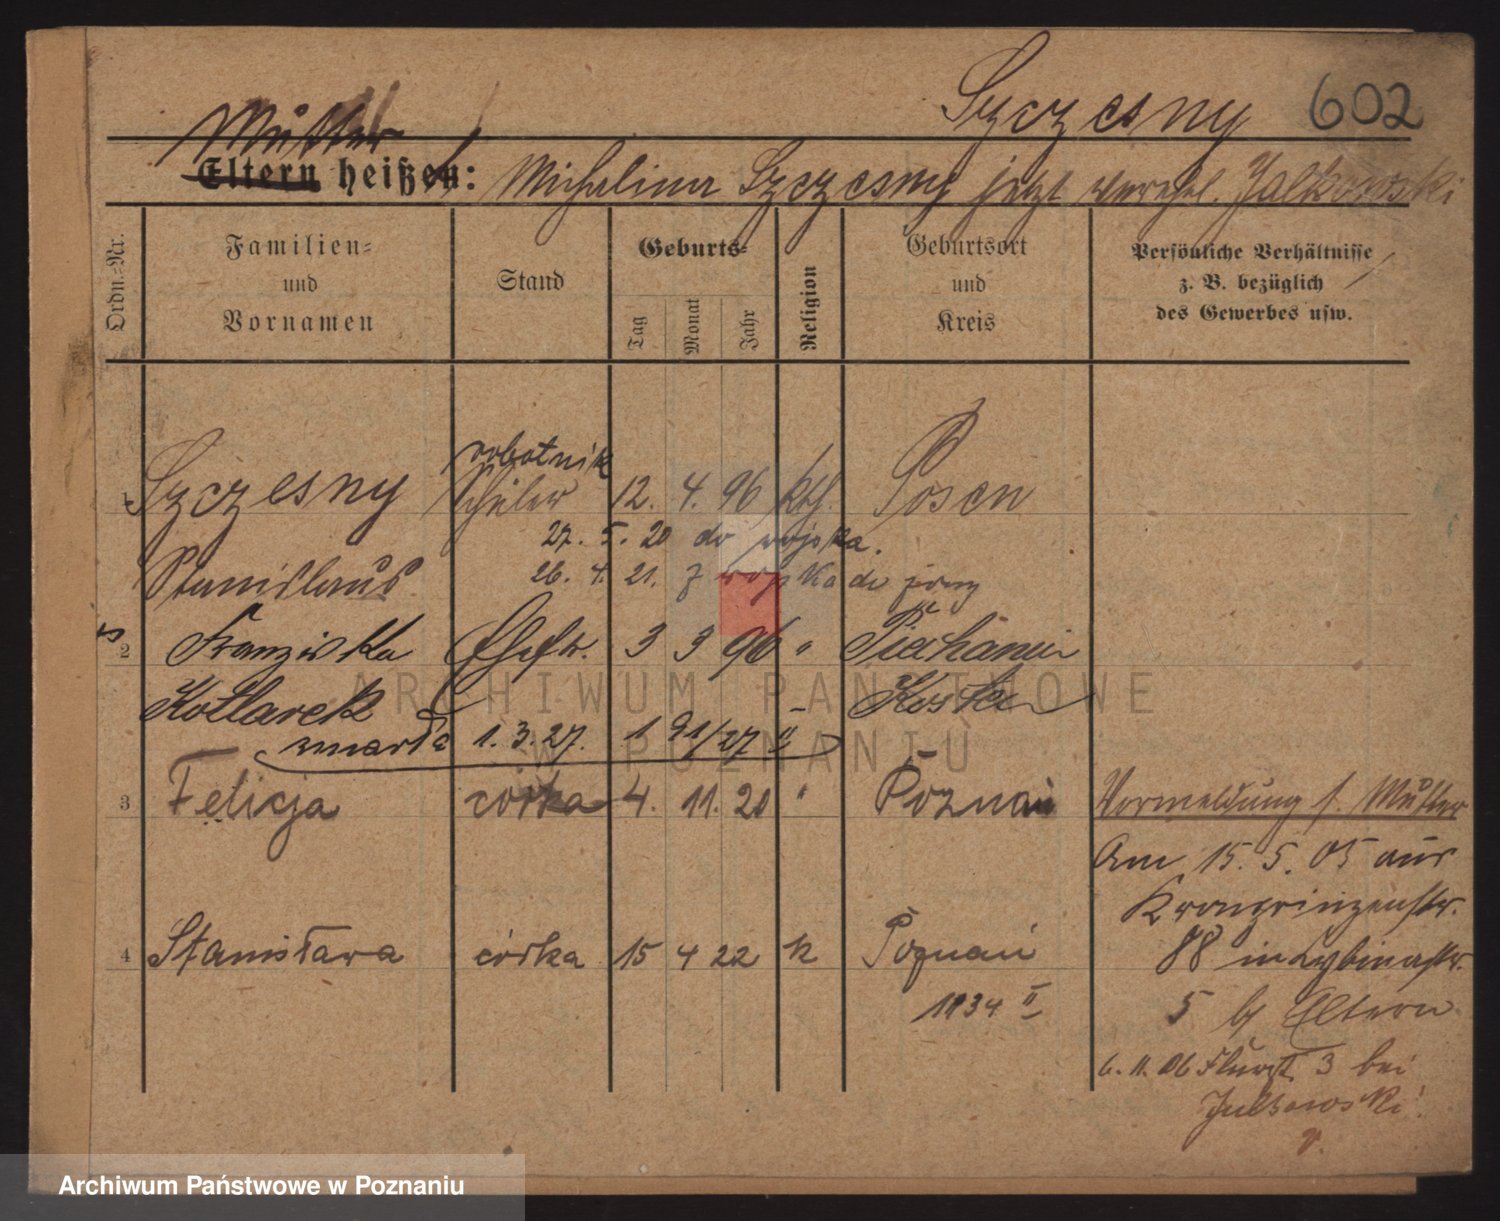 Szczesny 602
Mutter
Eltern heißen: Michalina Szczesny jetzt verehel. Jalkowski
Ordn.-Nr.
Familien-
und
Vornamen
Stand
Geburts-
Tag
Monat
Jahr
Religion
Geburtsort
und
Kreis
Persönliche Verhältnisse
z. B. bezüglich
des Gewerbes usw.
robotnik
1 Szczesny Schüler 12. 4. 96 kth. Posen
27. 5. 20 do wojska.
Stanislaus 26. 4. 21. z wojska do
2 Franziska Ehefr. 3 3 96 "
Kotlarek
zmarła 1. 3. 27. 1 91/27 II
3 Felicja córka 4. 11. 20 " Poznań
Vormeldung s. Mutter
Am 15. 5. 05 aus
Kronprinzenstr.
88 in Cybinastr.
4 Stanisława córka 15 4 22 k Poznań
1934 II
5 b/ Eltern
6. 11. 06 3 bei
Julkowski
ARCHIWUM PAŃSTWOWE
W POZNANIU
Archiwum Państwowe w Poznaniu